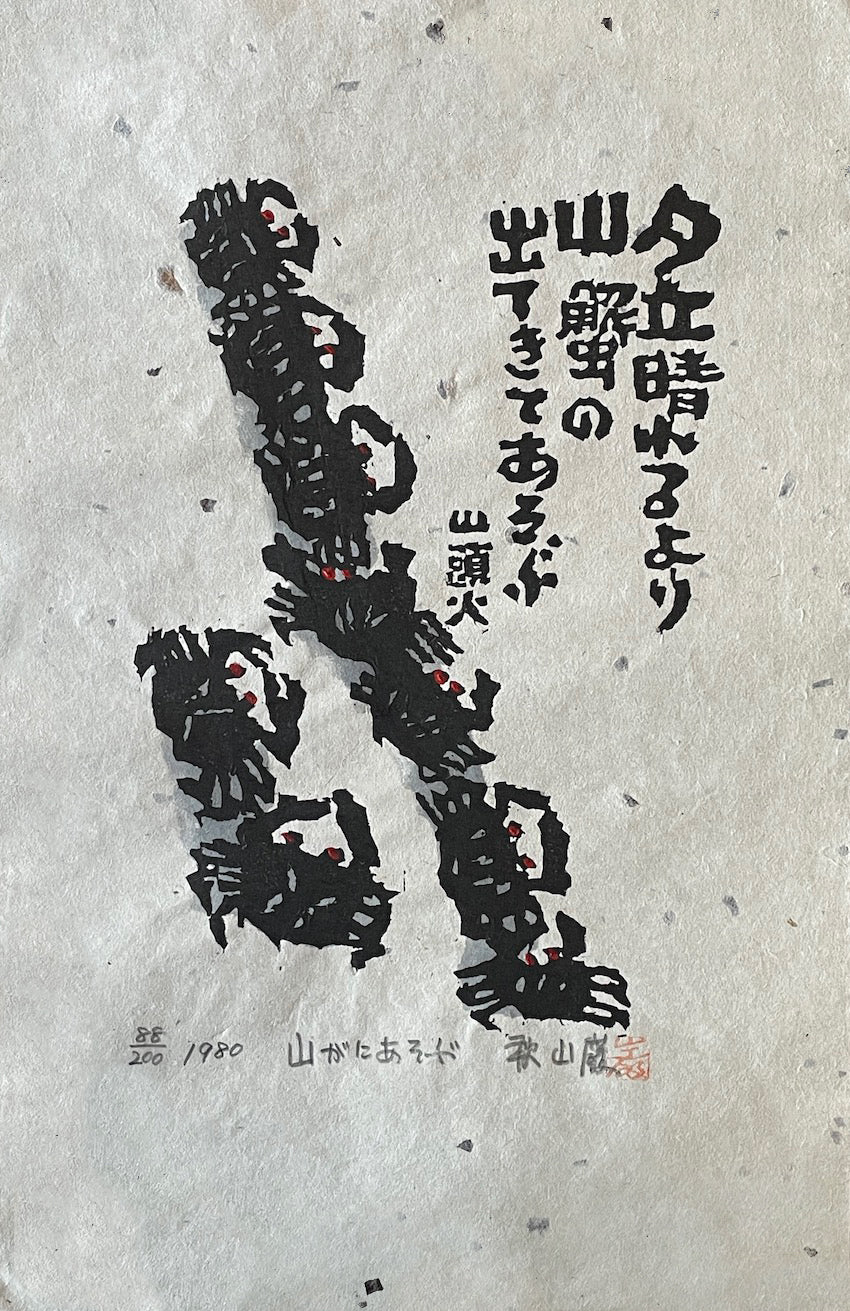 夕立晴れるより
山蟹の
出てきてあそぶ
山頭火
88/200 1980 山がにあそぶ 秋山巌